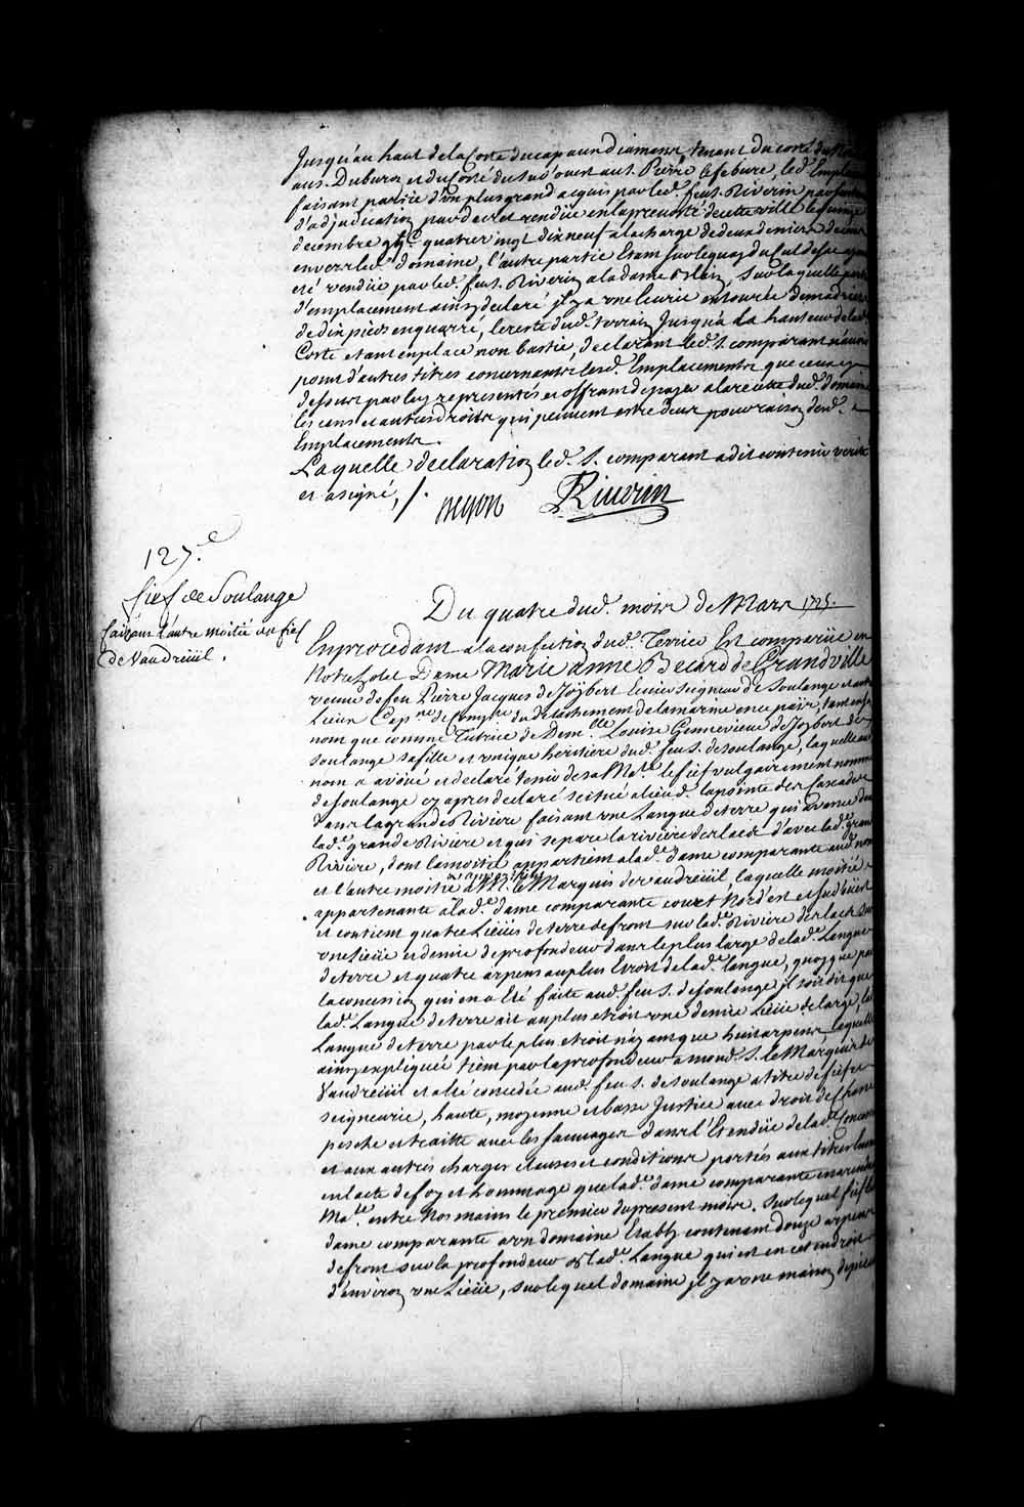 Jusqu'au haut dela Coste du cap aux diamens, tenant du costé du No
aus. Duburon et du Costé du sud'ouest au s. Pierre Lefebure, led. Emplace
faisant partie d'un plus grand acquis par led. feu s. Riverin par
d'adjudication par decret rendüe en la prevosté de cette ville le
decembre gbjc quatre vingt dix neuf a la charge de deux deniers de cens
envers led. domaine, l'autre partie Etant sur le quay du Cul de sac ayant
eté vendüe par led. feu s. Riverin a la dame Blein, Sur laquelle partie
d'emplacement ainsy declaré jl y a une Ecurie entourée de madriers
de dix pieds en quarré, le reste dud. terrain Jusqu'a La hauteur de lad.
Coste etant en place non bastie, declarant led. s. comparant n'avoir
point d'autres titres concernant lesd. Emplacements que ceux cy
dessus par luy representés et offrant de payer a la recette dud. domaine
les cens et autres droits qui peuvent estre deus pour raison desd.
Emplacements.
Laquelle declaration led. s. comparant a dit contenir verité
et a signé, /.
Begon Riuerin
127.e
fief de Soulange
faisant l'autre moitié du fief
de Vaudreüil.
Du quatre dud. mois de Mars 1725.
En procedant a la confection dud. Terrier Est comparüe en
Notre hotel Dame Marie anne Becard de Grandville
veuve de feu Pierre Jacques de Joÿbert Ecuier seigneur de Soulange et autres
Lieux Cap.ne de Comp.ie du detachement de la marine en ce païs, tant en son
nom que comme Tutrice de Dem.lle Louise Gennevieve de Joybert de
Soulange sa fille et unique heritiere dud. feu s. de soulange, laquelle au
nom a avoüé et declaré tenir de sa Ma.té le fief vulgairement nommé
de soulange cy apres declaré scitué a lieu d. la pointe des Cascades
dans la grande Riviere faisant une Langue de terre qui avance dans
lad.e grande Riviere et qui separe la riviere des lacs d'avec lad.e grande
Riviere, dont la moitié appartient a lad.e dame comparante aud. nom
et l'autre moitié a M. le Marquis de vaudreüil, laquelle moitié
appartenante a lad.e dame comparante court Nord'est et sud'oüest
et contient quatre Lieües de terre de front sur lad.e Riviere des lacs sur
une Lieüe et demie de profondeur dans le plus large de lad.e Langue
de terre et quatre arpens au plus Etroit de lad.e langue, quoyque par
la concession qui en a Eté faite aud. feu s. de soulange jl soit dit que
lad.e Langue de terre ait au plus etroit une demie Lieüe de large, la
Langue de terre par le plus etroit n'ayant que huit arpens laquelle
ainsy expliquée tient par la profondeur a mond. s. le Marquis de
Vaudreüil et a eté concedée aud. feu s. de soulange a titre de fief et
seigneurie, haute, moyenne et basse Justice avec droit de chasse
pesche et traitte avec les sauvages dans l'Etendüe de lad.e Concession
et aux autres charges clauses et conditions portés aux titres
en l'acte de foy et hommage que lad.e dame comparante en a rendu
Ma.té entre Nos mains le premier du present mois. Sur lequel fief la
dame comparante a un domaine Etably contenant douze arpens
de front sur la profondeur de lad.e Langue qui est en cet endroit
d'environ une Lieüe, sur lequel domaine jl y a une maison de pieces